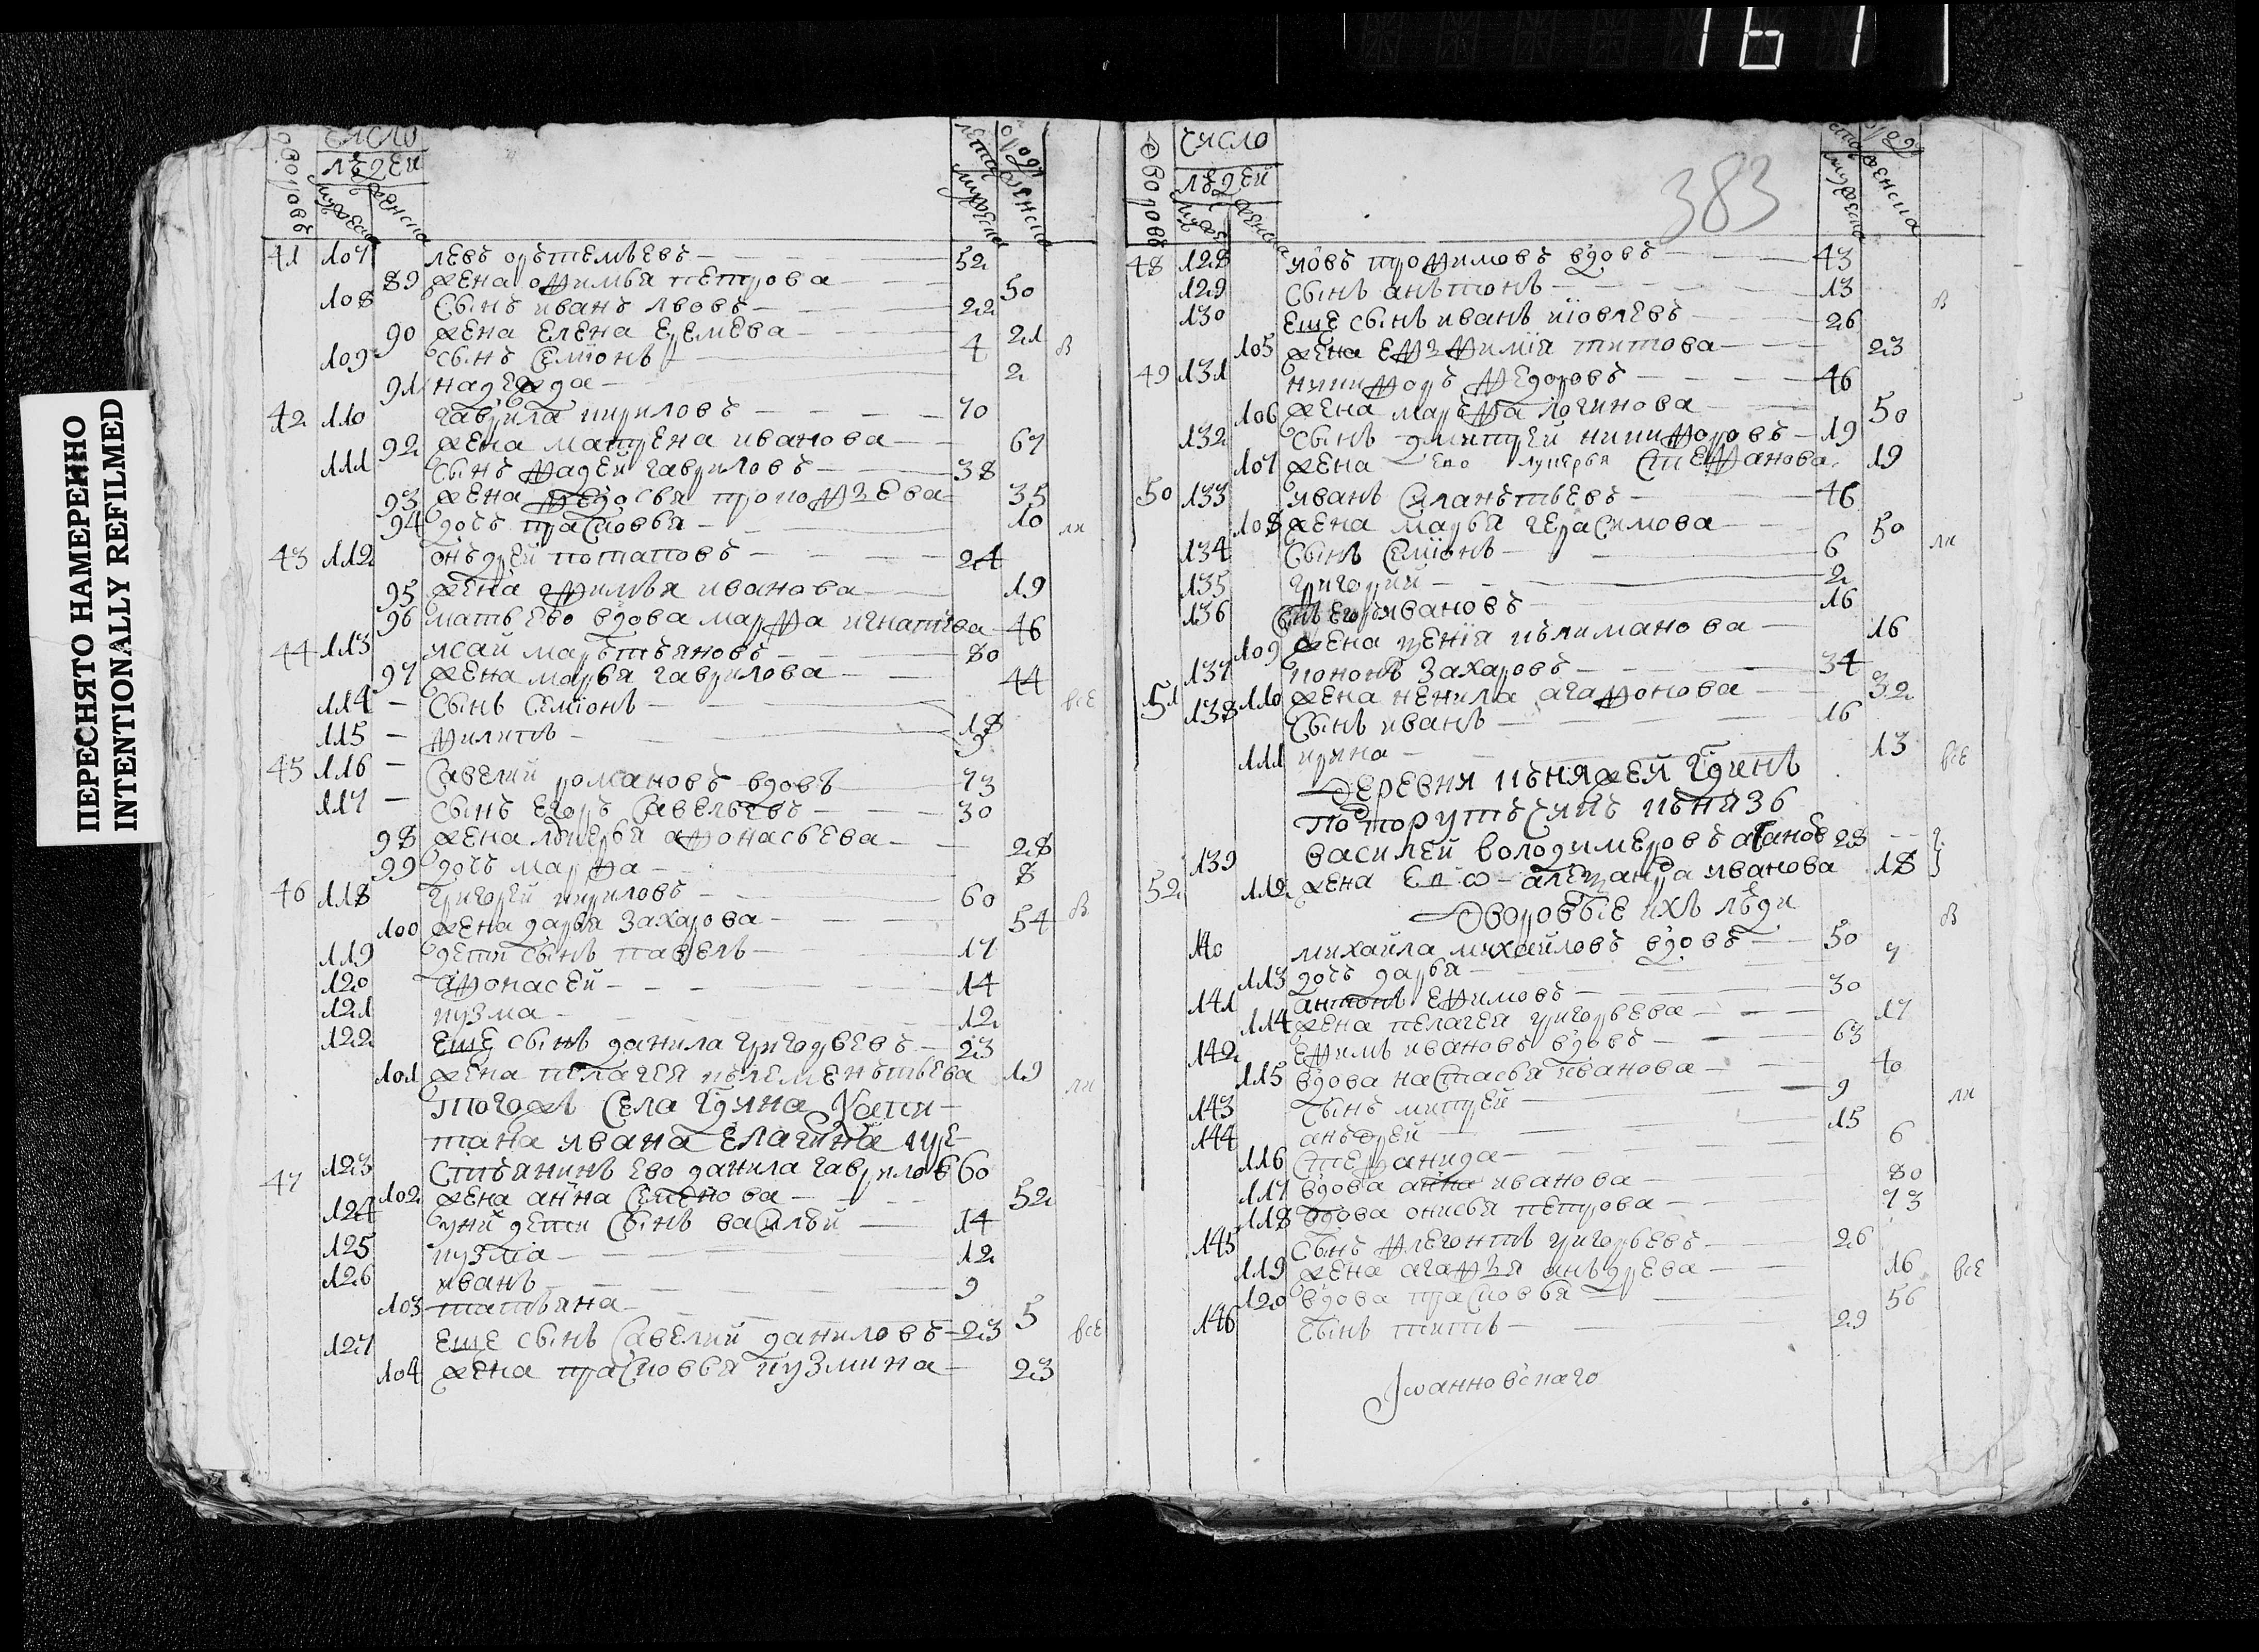 161
ПЕРЕСНЯТО НАМЕРЕННО
INTENTIONALLY REFILMED
дворовъ число людей мужеска женска лета мужеска женска
41 107 левъ орътемьевъ 52
89 жена офимья петрова 50
108 сынъ иванъ львовъ 22
90 жена елена еремеева 21
109 сынъ семионъ 4
91 надежда 2
42 110 гаврила кириловъ 70
92 жена матрена иванова 67
111 сынъ фадей гавриловъ 38
93 жена федосья прокофзева 35
94 дочь прасковья 10
43 112 онъдрей потаповъ 24
95 жена офимья иванова 19
96 мать ево вдова марфа игнатива 46
44 113 исай марътьяновъ 80
97 жена марья гаврилова 44
114 сынъ семионъ 18
115 филипъ 9
45 116 савелий романовъ вдовъ 73
117 сынъ егоръ савельевъ 30
98 жена лукерья афонасьева 28
99 дочь марфа 8
46 118 григорей кириловъ 60
100 жена дарья захарова 54
119 дети сынъ павелъ 17
120 афонасей 14
121 кузма 12
122 еще сынъ данила григорьевъ 23
101 жена пелагея клеменътьева 19
тогожъ села гдина капи
тана ивана елагина кре
47 123 стьянинъ ево данила гаврилов 60
102 жена анна семенова 52
124 уних дети сынъ васильи 14
125 кузма 12
126 иванъ 9
103 татьяна 5
127 еще сынъ савелий даниловъ 23
104 жена прасковья кузмина 23
383
дворовъ число людей мужеска женска мужеска женска
48 128 иовъ трофимовъ вдовъ 43
129 сынъ анътонъ 13
130 еще сынъ иванъ иовлевъ 26
105 жена ефзфимия титова 23
49 131 никифоръ федоровъ 46
106 жена маръфа логинова 50
132 сынъ дмитрей никифоровъ 19
107 жена ево лукерья стефанова 19
50 133 иванъ силанътьевъ 46
108 жена марья герасимова 50
134 сынъ семионъ 6
135 григорий 2
136 сынъ егоръ ивановъ 16
109 жена ксения илиманова 16
137 кононъ захаровъ 34
51 110 жена ненила агафонова 32
138 сынъ иванъ 16
111 ирина 13
деревня къняжей гдинъ
подпорутьчикъ къниязь
139 василей володимеровъ аганов 28
52 112 жена ево алеѯандра иванова 18
дворовые ихъ люди
140 михайла михайловъ вдовъ 50
113 дочь дарья 7
141 антонъ ефимовъ 30
114 жена пелагея григорьева 17
142 ефимъ ивановъ вдовъ 63
115 вдова настасья иванова 40
143 сынъ митрей 9
144 анъдрей 15
116 стефанида 6
117 вдова анна иванова 80
118 вдова онисья петрова 73
145 сынъ флегонтъ григорьевъ 26
119 жена агафзя анъдреева 16
120 вдова прасковья 56
146 сынъ титъ 29
Іѡанновскаго